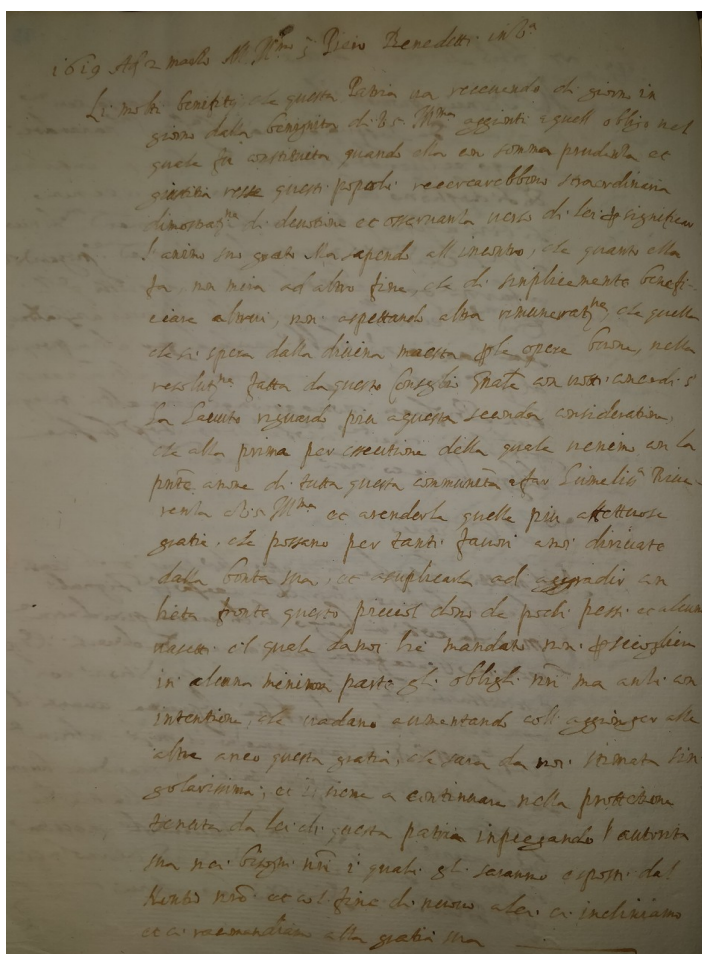 1619 Adi 2 marzo All Ill.mo S. Piero Benedetti in
Li molti benifitii che questa Patria va recevendo di giorno in
giorno dalla benignità di VS Ill.ma aggionti a quell obligo nel
quale fu constituita quando ella con somma prudenza et
giustitia resse questi popoli recercarebbono straordinaria
dimostrat.ne di devotione et osservanza verso di lei significar
l'animo suo grato Ma sapendo all incontro, che quanto ella
fa, non mira ad altro fine, che di simplicemente benefi-
ciare altrui, non aspettando altra remunerat.ne che quella
che si spera dalla divina maestà le opere buone, nella
resolut.ne fatta da questo Consiglio con voti
ha havuto riguardo più a questa seconda consideratione
che alla prima per essecutione della quale venimo con la
pnte a nome di tutta questa communità a far humeliss. Rive-
renza a VS Ill.ma et a renderle quelle più affettuose
gratie, che possano per tanti favori a noi dirivate
dalla bontà sua, et a suplicarla ad aggradir con
lieta fronte questo picciol dono de pochi pessi et alcuni
il quale da noi li è mandato non sciogliere
in alcuna minima parte gli oblighi nri ma anzi con
intentione, che vadano aumentando coll aggionger alle
altre anco questa gratia, che sarà da noi stimata sin
golarissima, et a continuare nella prottetione
tenuta da lei di questa patria inpiegando l'autorità
sua nei bisogni nri i quali gli saranno esposti dal
nro et col fine di nuovo a lei ci incliniamo
et ci racomandiamo alla gratia sua